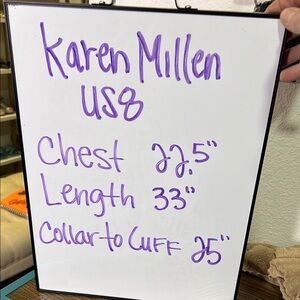 Karen Millen
US8
Chest 22.5"
Length 33"
Collar to Cuff 25"